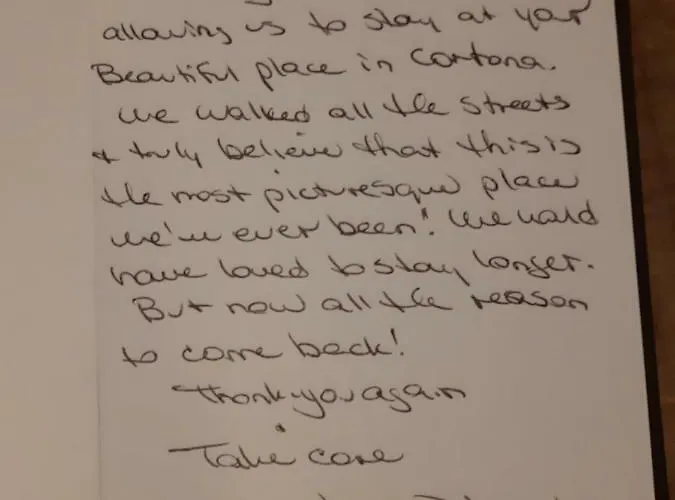 allowing us to stay at your
Beautiful place in Cortona.
We walked all the streets
& truly believe that this is
the most picturesque place
we've ever been! We would
have loved to stay longer.
But now all the reason
to come back!
Thank you again
Take care